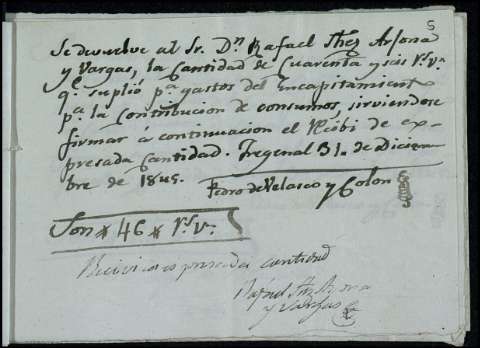 5
Se devuelve al Sr. Dn Rafael Shez Arjona
y Vargas, la Cantidad de Cuarenta y seis rs. vn.
qe. suplió pa. gastos del Encapitamient
pa. la Contribucion de consumos, sirviendose
firmar á continuacion el Recibi de ex-
presada Cantidad. Fregenal 31. de Diciem-
bre de 1845.
Pedro de Velasco y Colon
Son # 46 # rs. vn.
Recivi la espresada cantidad
Rafael Shz Arjona
y Vargas